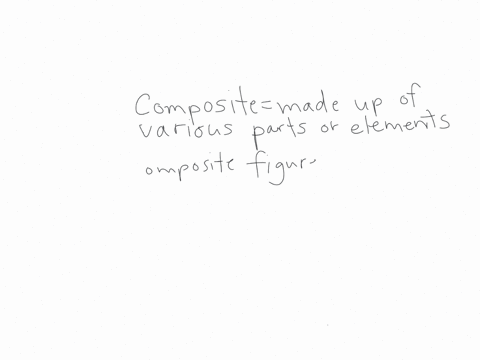 Composite=made up of
various parts or elements
omposite figur